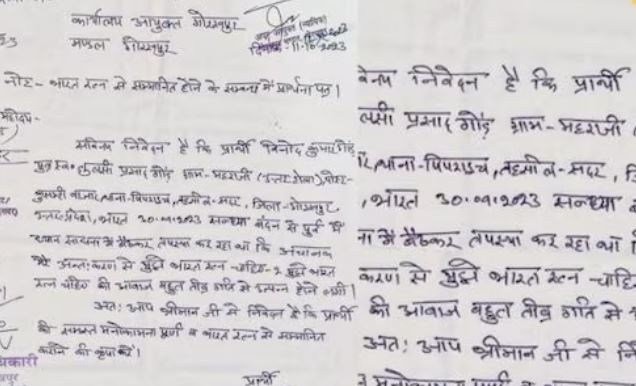 कार्यालय आयुक्त गोरखपुर
मण्डल गोरखपुर
दिनांक-11-10-2023
नोट- भारत रत्न से सम्मानित होने के सम्बन्ध में प्रार्थना पत्र।
महोदय-
सविनय निवेदन है कि प्रार्थी विनोद कुमार गौड़
पुत्र स्व० तुलसी प्रसाद गौड़ ग्राम-महराजी
बाजार, थाना-पिपराइच, तहसील-सदर, जिला-गोरखपुर
उत्तर प्रदेश, भारत 30.09.2023 सन्ध्या वंदन से पूर्व
ध्यान साधना में बैठकर तपस्या कर रहा था कि अचानक
अन्तः करण से मुझे भारत रत्न चाहिए-2 मुझे भारत
रत्न चाहिए की आवाज बहुत तीव्र गति से उत्पन्न होने लगी।
अतः आप श्रीमान जी से निवेदन है कि प्रार्थी
की समस्त मनोकामना पूर्ण व भारत रत्न से सम्मानित
करने की कृपा करें।
प्रार्थी
निवेदन है कि प्रार्थी
प्रसाद गौड़ ग्राम-महराजी
थाना-पिपराइच, तहसील-सदर,
, भारत 30.09.2023 सन्ध्या
में बैठकर तपस्या कर रहा था
करण से मुझे भारत रत्न-
की आवाज बहुत तीव्र गति से
अतः आप श्रीमान जी से